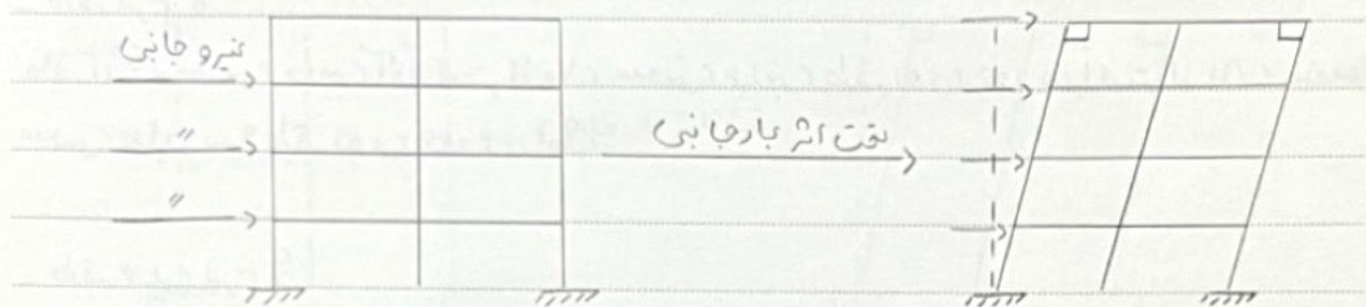 نیرو جانبی
"
"
تحت اثر بار جانبی